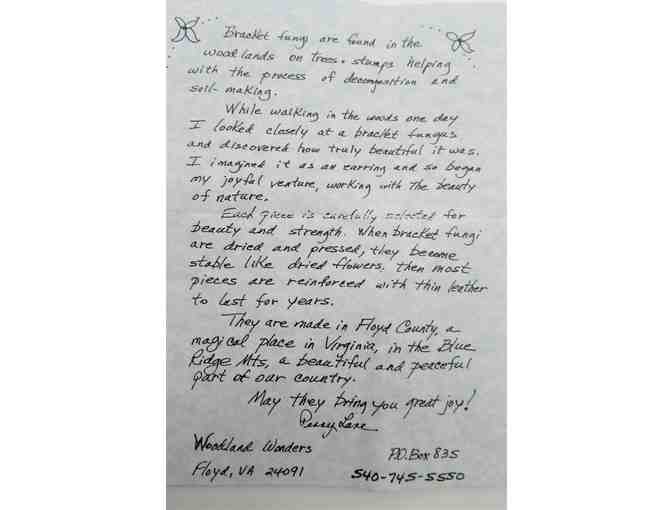 Bracket fungi are found in the
woodlands on trees + stumps helping
with the process of decomposition and
soil-making.
While walking in the woods one day
I looked closely at a bracket fungus
and discovered how truly beautiful it was.
I imagined it as an earring and so began
my joyful venture, working with the beauty
of nature.
Each piece is carefully selected for
beauty and strength. When bracket fungi
are dried and pressed, they become
stable like dried flowers. then most
pieces are reinforced with thin leather
to last for years.
They are made in Floyd County, a
magical place in Virginia, in the Blue
Ridge Mts, a beautiful and peaceful
part of our country.
May they bring you great joy!
Lane
Woodland Wonders
P.O. Box 835
Floyd, VA 24091
540-745-5550